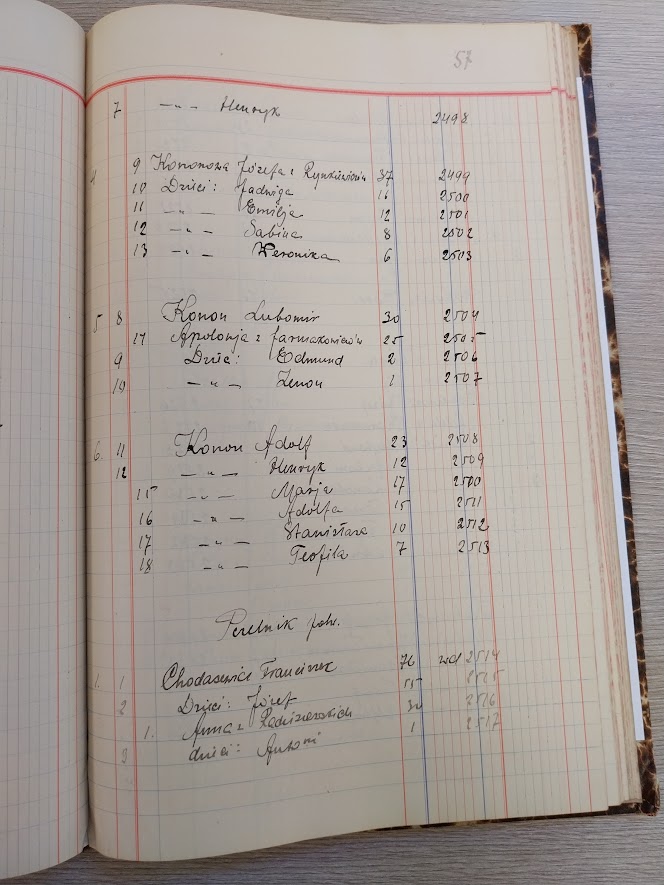 57
7 —"— Henryk 2498
4 9 Kononowa Józefa z Rynkiewiczów 37 2499
10 Dzieci: Jadwiga 16 2500
11 —"— Emilja 12 2501
12 —"— Sabina 8 2502
13 —"— Weronika 6 2503
5 8 Konon Lubomir 30 2504
14 Apolonja z Jarmakowiczów 25 2505
9 Dziec: Edmund 2 2506
10 —"— Zenon 1 2507
6. 11 Konon Adolf 23 2508
12 —"— Henryk 12 2509
15 —"— Marja 17 2500
16 —"— Adolfa 15 2511
17 —"— Stanisława 10 2512
18 —"— Teofila 7 2513
Perelnik folw.
1. 1 Chodasewicz Franciszek 76 wd 2514
2 Dzieci: Józef 55 2515
1. Anna z 30 2516
3 dzieci: Antoni 1 2517